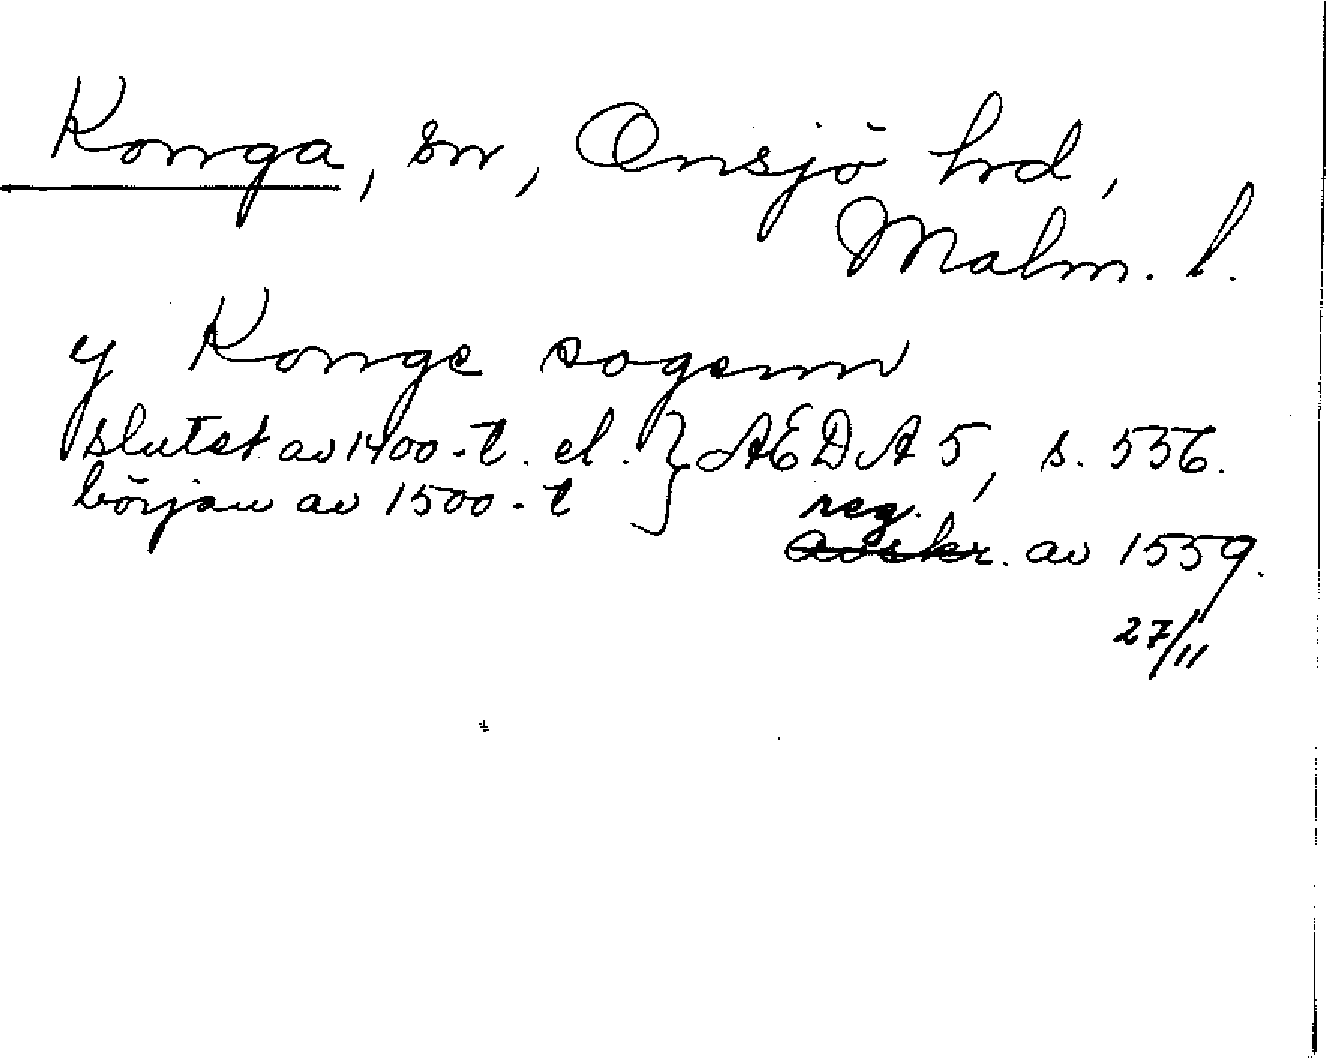 Konga, sn, Onsjö hrd,
Malm. l.
y Konge sogenn
slutet av 1400-t. el. } AEDA 5, s. 536.
början av 1500-t
reg.
avskr. av 1559.
27/11